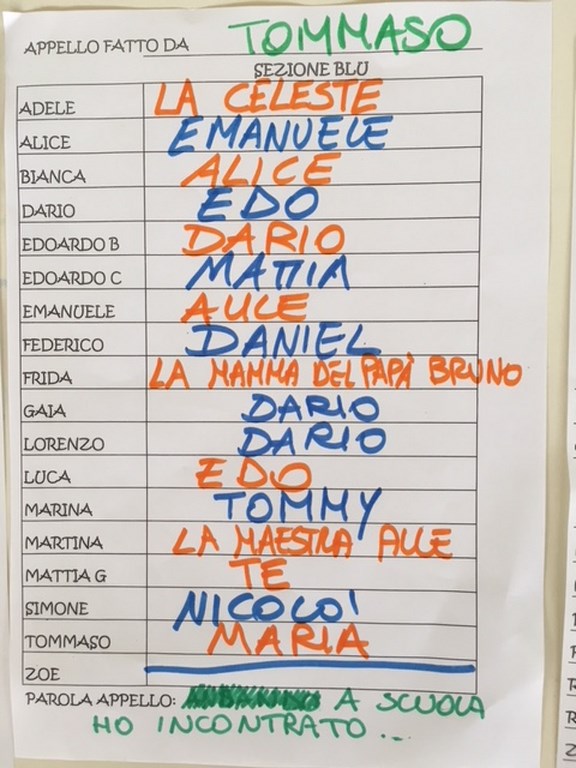 APPELLO FATTO DA TOMMASO
SEZIONE BLU
ADELE LA CELESTE
ALICE EMANUELE
BIANCA ALICE
DARIO EDO
EDOARDO B DARIO
EDOARDO C MATTIA
EMANUELE ALICE
FEDERICO DANIEL
FRIDA LA MAMMA DEL PAPÀ BRUNO
GAIA DARIO
LORENZO DARIO
LUCA EDO
MARINA TOMMY
MARTINA LA MAESTRA ALLE
MATTIA G TE
SIMONE NICOLO'
TOMMASO MARIA
ZOE
PAROLA APPELLO: A SCUOLA
HO INCONTRATO...